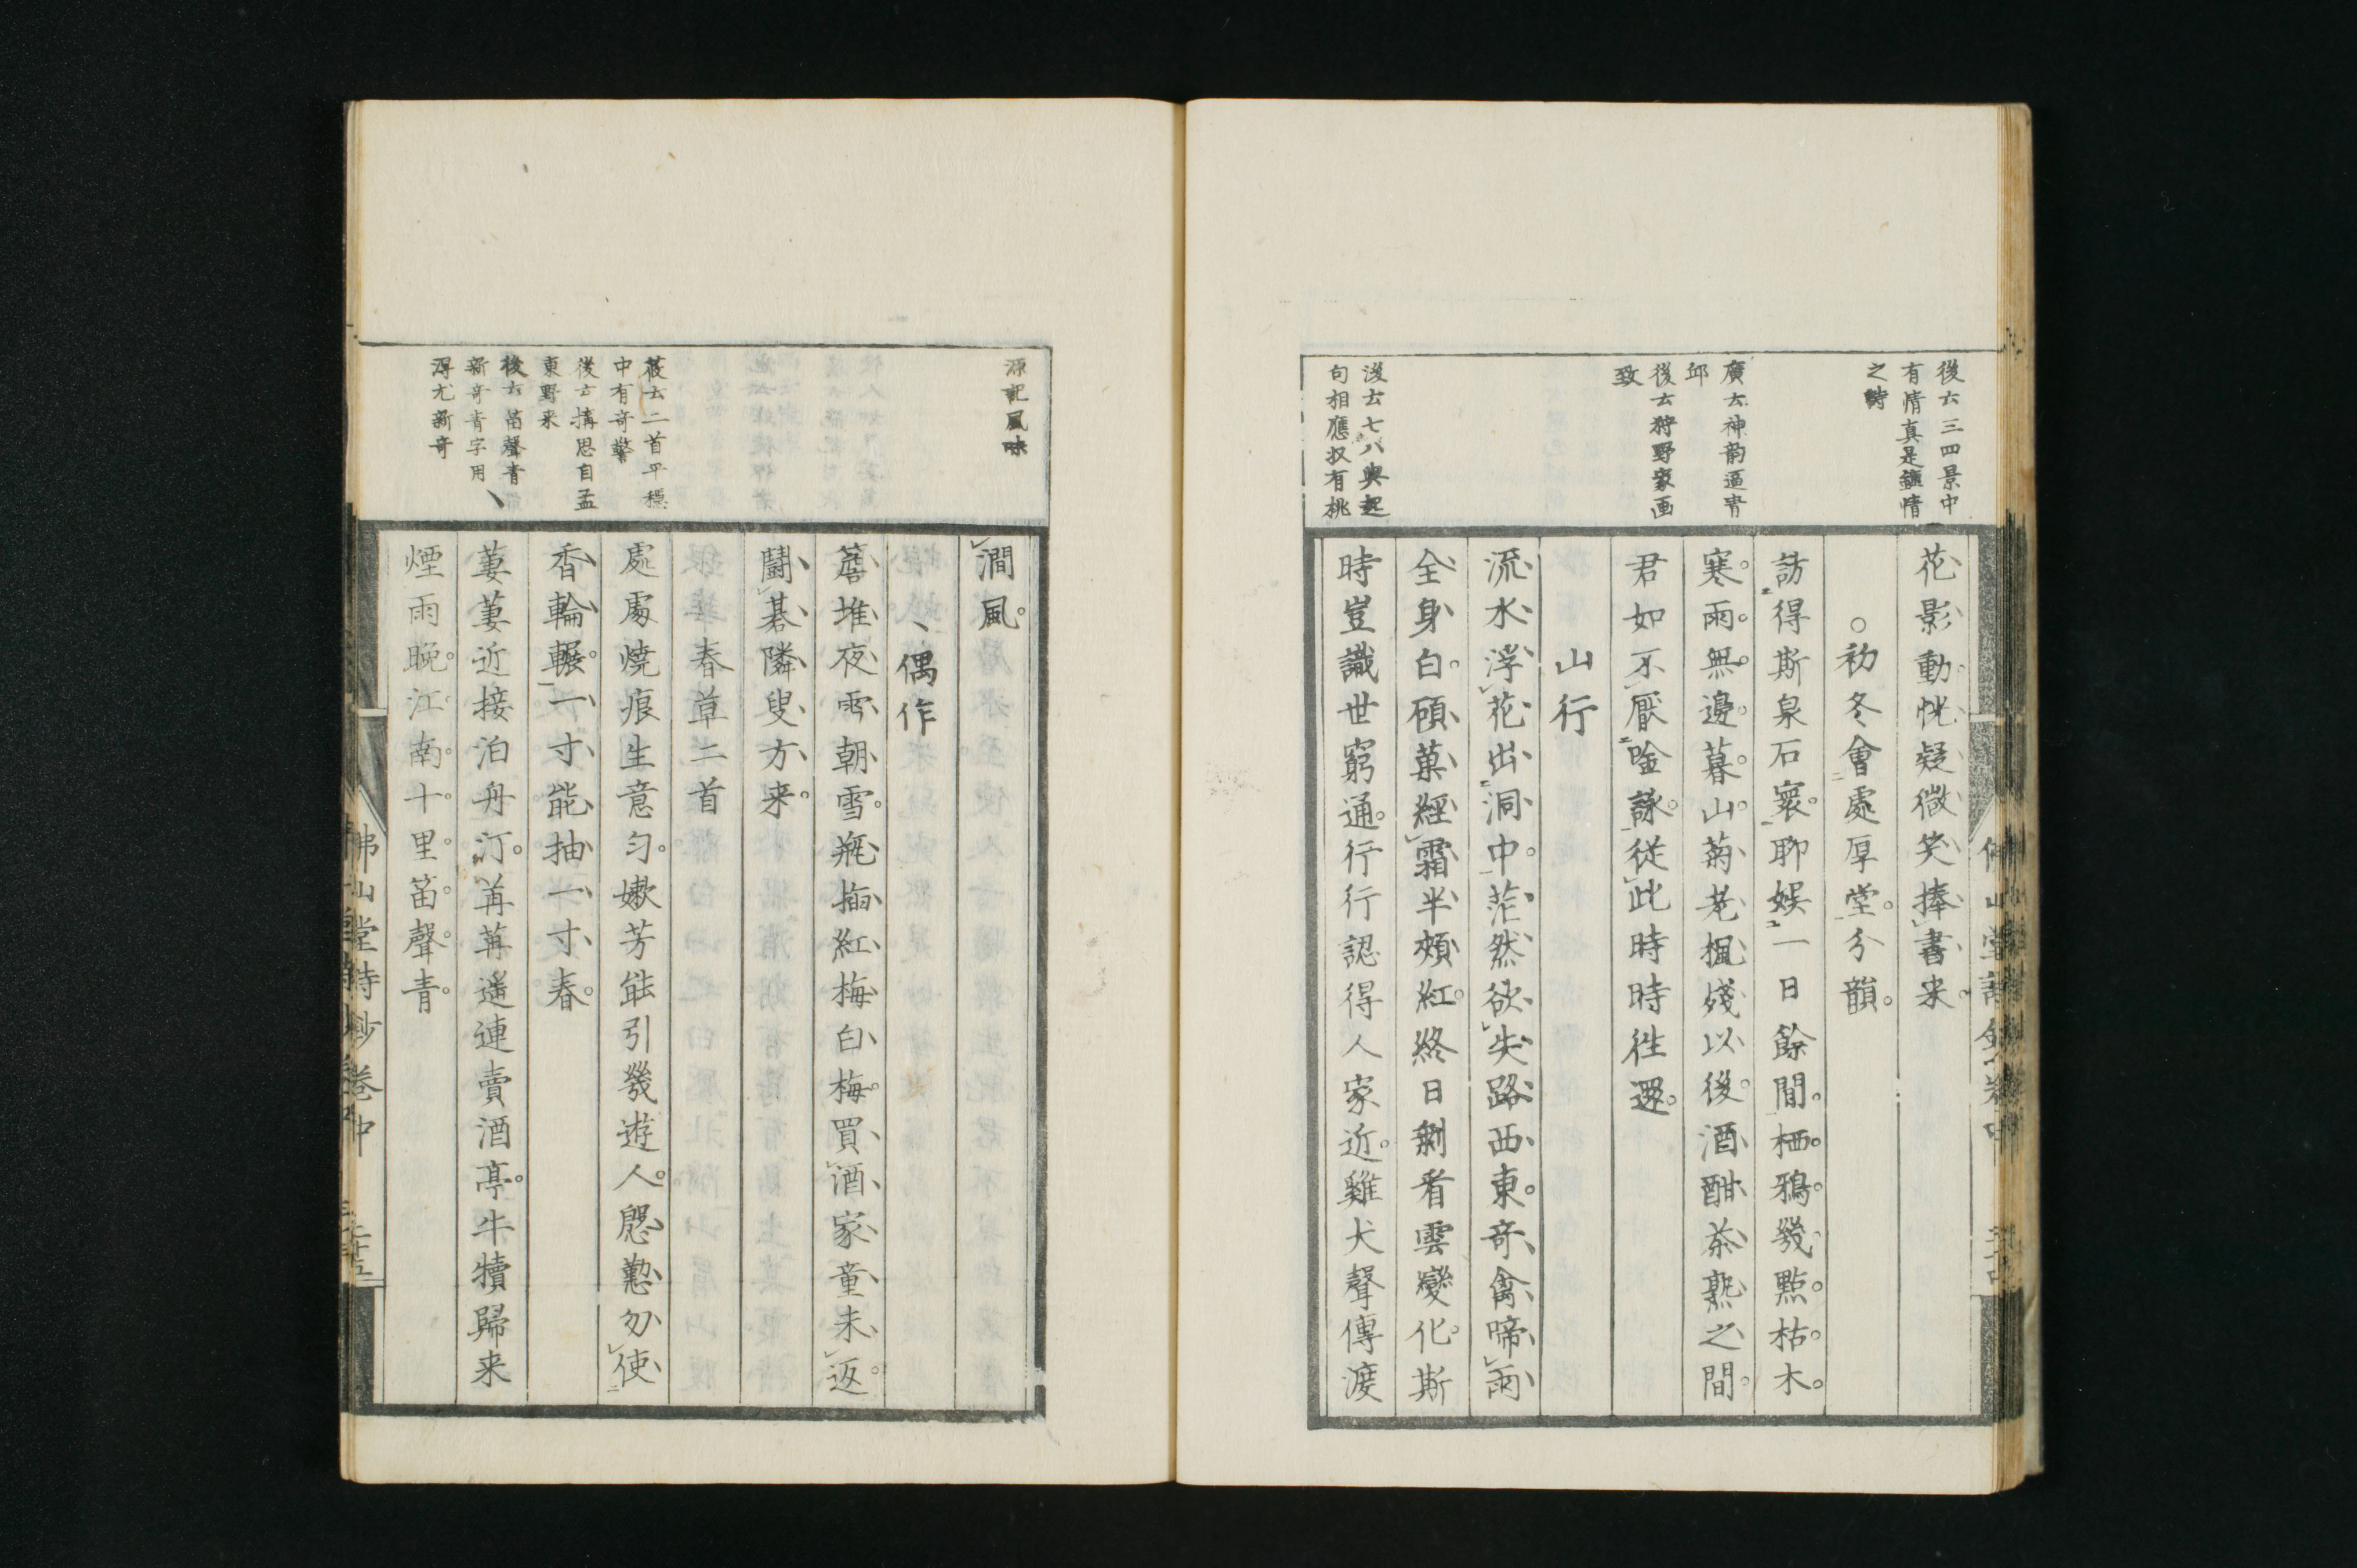 後云三四景中
有情真是鎮情
之詩
廣云神韵逼宵
邱
後云狩野家画
致
後云七八與起
句相應収有桃
花影動恍疑微笑捧書来
○初冬會處厚堂分韻
訪得斯泉石寰聊娯一日餘閒栖鴉幾點枯木
寒雨無邊暮山菊老楓殘以後酒酣茶熟之間
君如不厭唫詠從此時時徃還
山行
流水浮花出洞中茫然欲失路西東奇禽啼雨
全身白碩菓經霜半頬紅終日剰看雲變化斯
時豈識世窮通行行認得人家近雞犬聲傳渡
源記風味
後云二首平穏
中有奇警
後云構思自孟
東野来
後云笛聲青
新奇青字用
得尤新奇
澗風
偶作
簷堆夜雪朝雪瓶挿紅梅白梅買酒家童未返
鬪碁隣叟方来
春草二首
處處燒痕生意匀嫰芳能引幾遊人慇懃勿使
香輪輾一寸能抽一寸春
萋萋近接泊舟汀苒苒遥連賣酒亭牛犢歸来
煙雨晩江南十里笛聲青
佛山堂詩鈔巻中